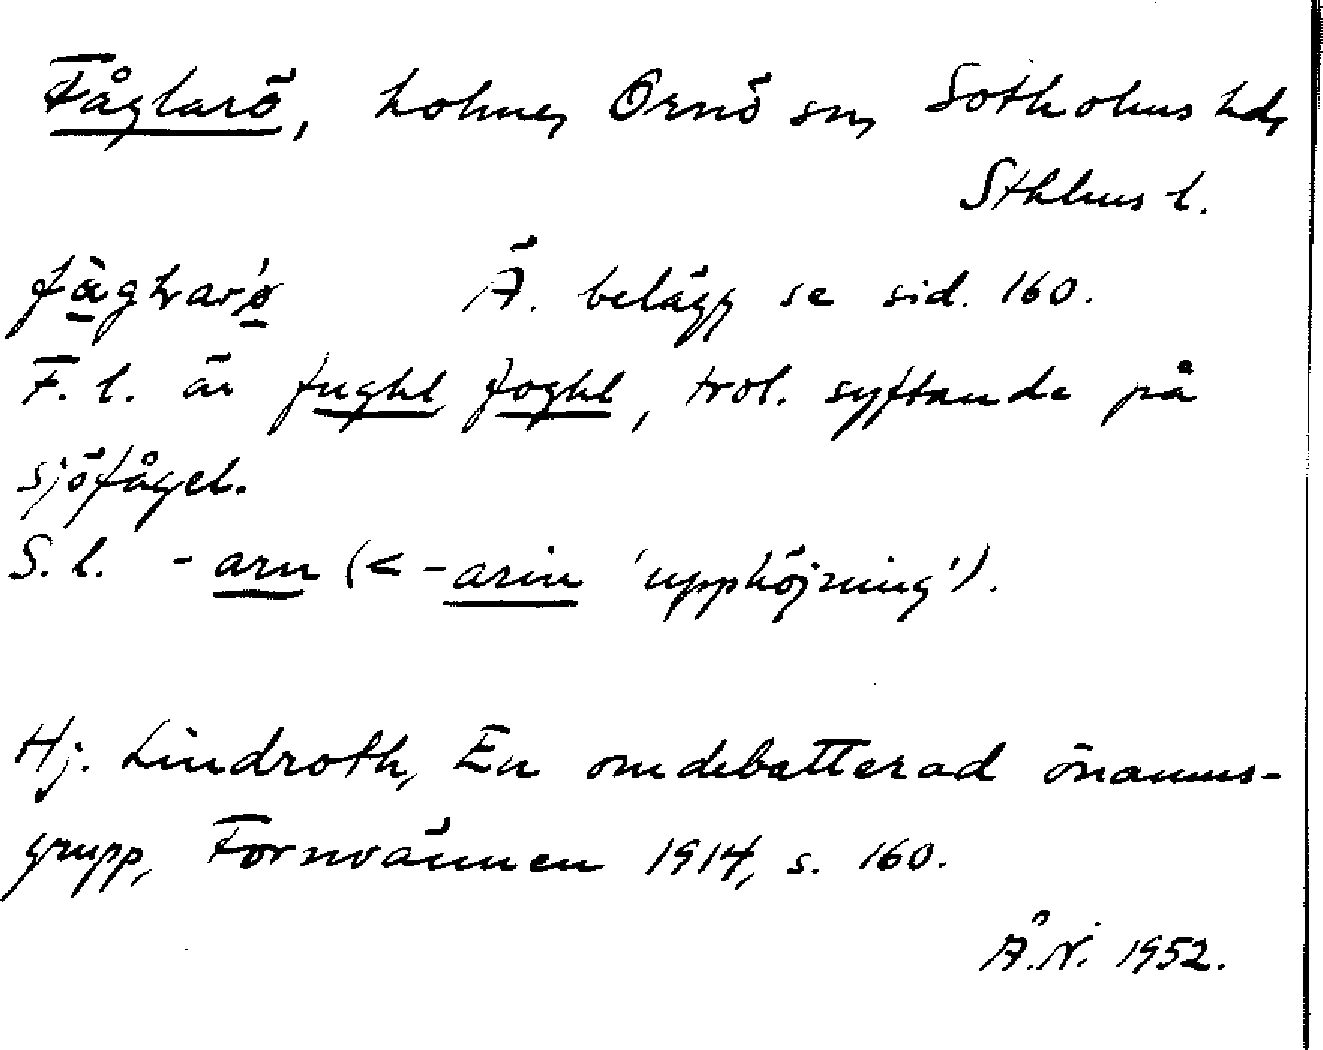 Fåglarö, holme, Ornö sn, Sotholms hd,
Sthlms l.
Ä. belägg se sid. 160.
F. l. är fughl foghl, trol. syftande på
sjöfågel.
S. l. -arn (< -arin 'upphöjning').
Hj. Lindroth, En omdebatterad önamns-
grupp, Fornvännen 1914, s. 160.
Å. N. 1952.